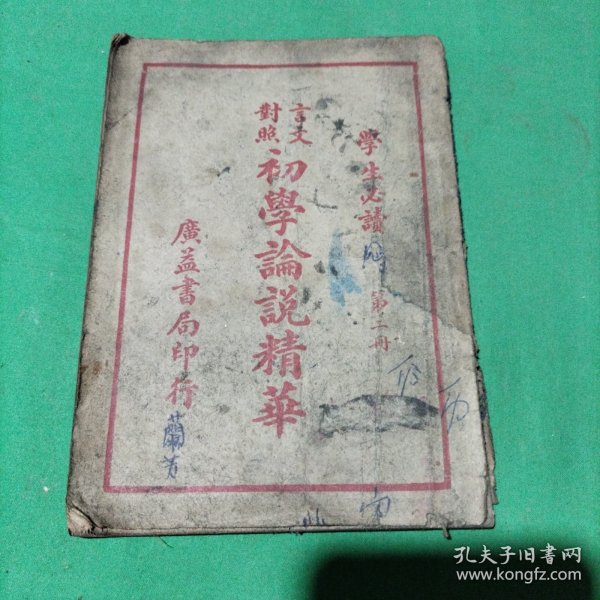 學生必讀
第二冊
言文對照
初學論說精華
廣益書局印行
蘭芳
孔夫子旧书网
www.kongfz.com